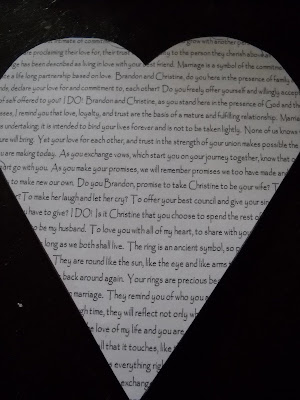 mate of comm grow with another p
e proclaiming their love for, their trus to the person they cherish above a
ge has been described as living in love with your best friend. Marriage is a symbol of the commitme
te a life long partnership based on love. Brandon and Christine, do you here in the presence of family
nds, declare your love for and commitment to, each other? Do you freely offer yourself and willingly accep
of self offered to you? I DO! Brandon and Christine, as you stand here in the presence of God and th
esses, I remind you that love, loyalty, and trust are the basis of a mature and fulfilling relationship. Marria
e undertaking; it is intended to bind your lives forever and is not to be taken lightly. None of us knows
ure will bring. Yet your love for each other, and trust in the strength of your union makes possible th
u are making today. As you exchange vows, which start you on your journey together, know that o
n't go with you. As you make your promises, we will remember promises we too have made an
to make new our own. Do you Brandon, promise to take Christine to be your wife? T
? To make her laugh and let her cry? To offer your best council and give your sin
y have to give? I DO! Is it Christine that you choose to spend the rest of
to be my husband. To love you with all of my heart, to share with you
long as we both shall live. The ring is an ancient symbol, so p
They are round like the sun, like the eye and like arms
back around again. Your rings are precious be
marriage. They remind you of who you a
ght time, they will reflect not only wh
he love of my life and you are
all that it touches, like t
e everything righ
exchang